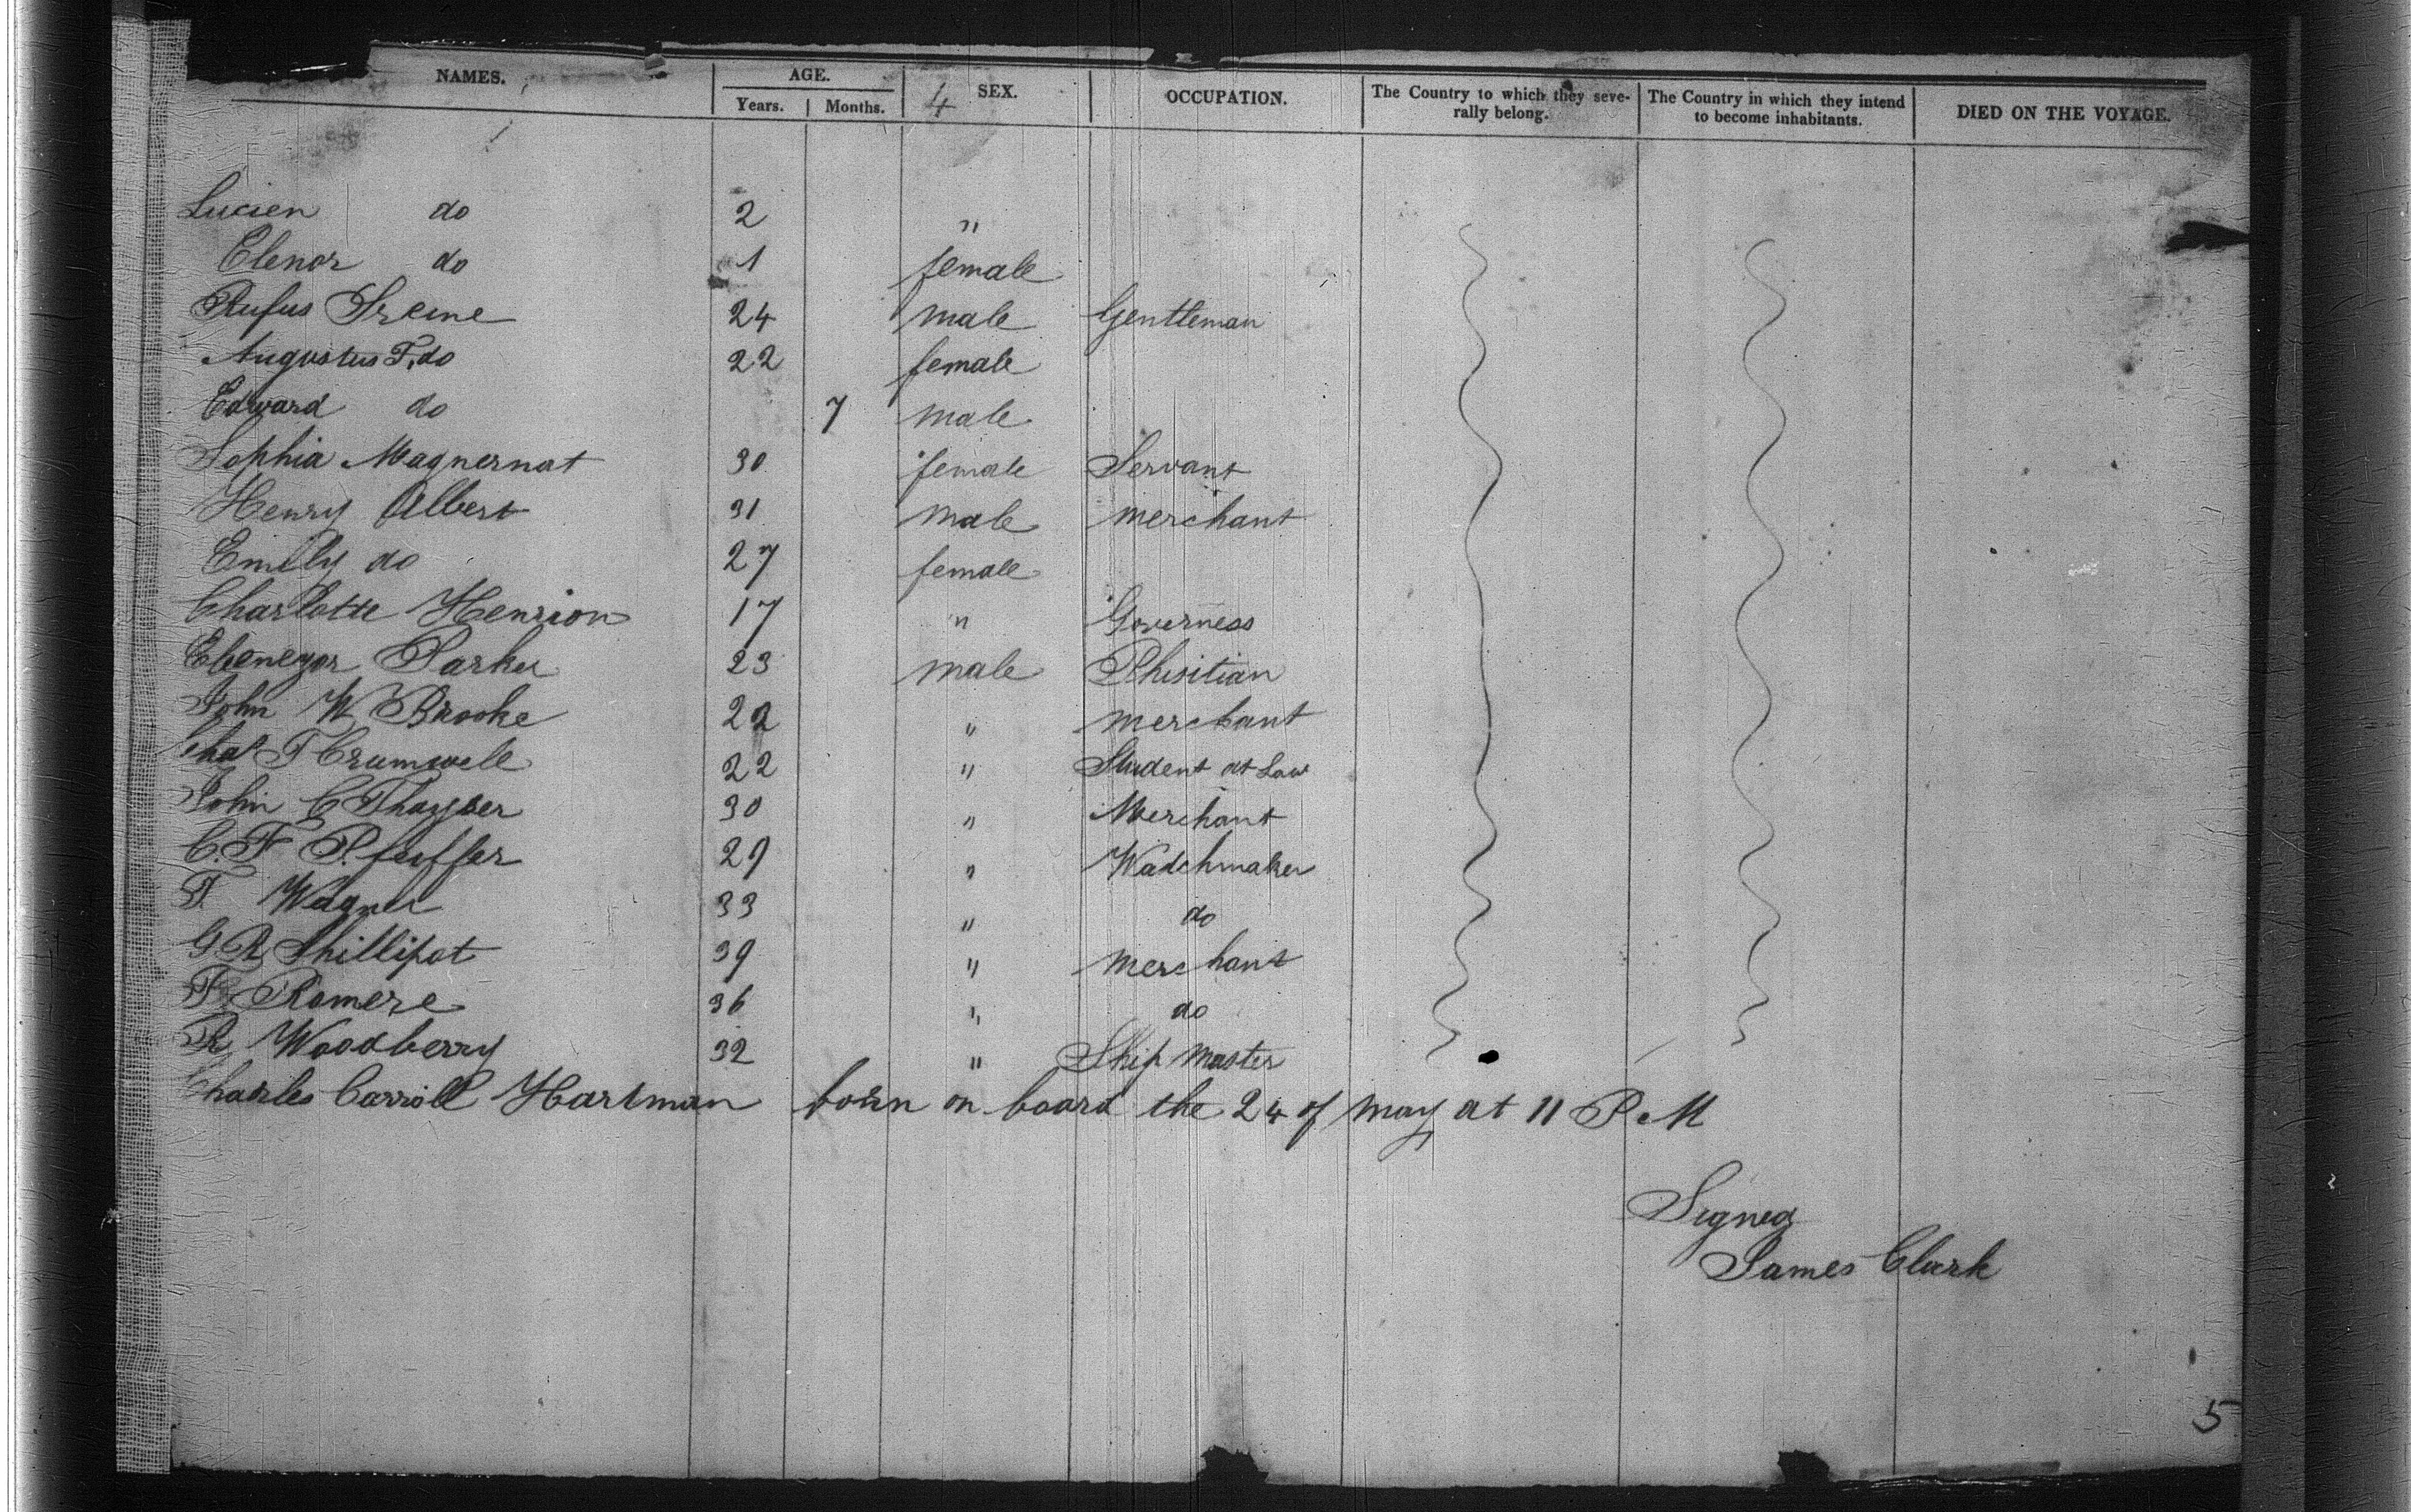 NAMES. AGE. SEX. OCCUPATION. The Country to which they seve- The Country in which they intend DIED ON THE VOYAGE.
Years. Months. 4 rally belong. to become inhabitants.
Lucien do 2 "
Elenor do 1 female
Rufus 24 male Gentleman
Augustus F. do 22 female
Edward do 7 male
Sophia Magnernat 30 female Servant
Henry Albert 31 male merchant
Emily do 27 female
Charlotte Henrion 17 " Governess
Ebenezor Parker 23 male Phisitian
John W Brooke 22 " merchant
Chas T Crumwell 22 " Student at Law
John C 30 " Merchant
C. F Pfeiffer 29 " Wadchmaker
F. Wagner 33 " do
G R Phillipot 39 " merchant
F. Romere 36 " do
R Woodberry 32 " Ship master
Charles Carroll Hartman born on board the 24 of may at 11 P.M
Signed
James Clark
5